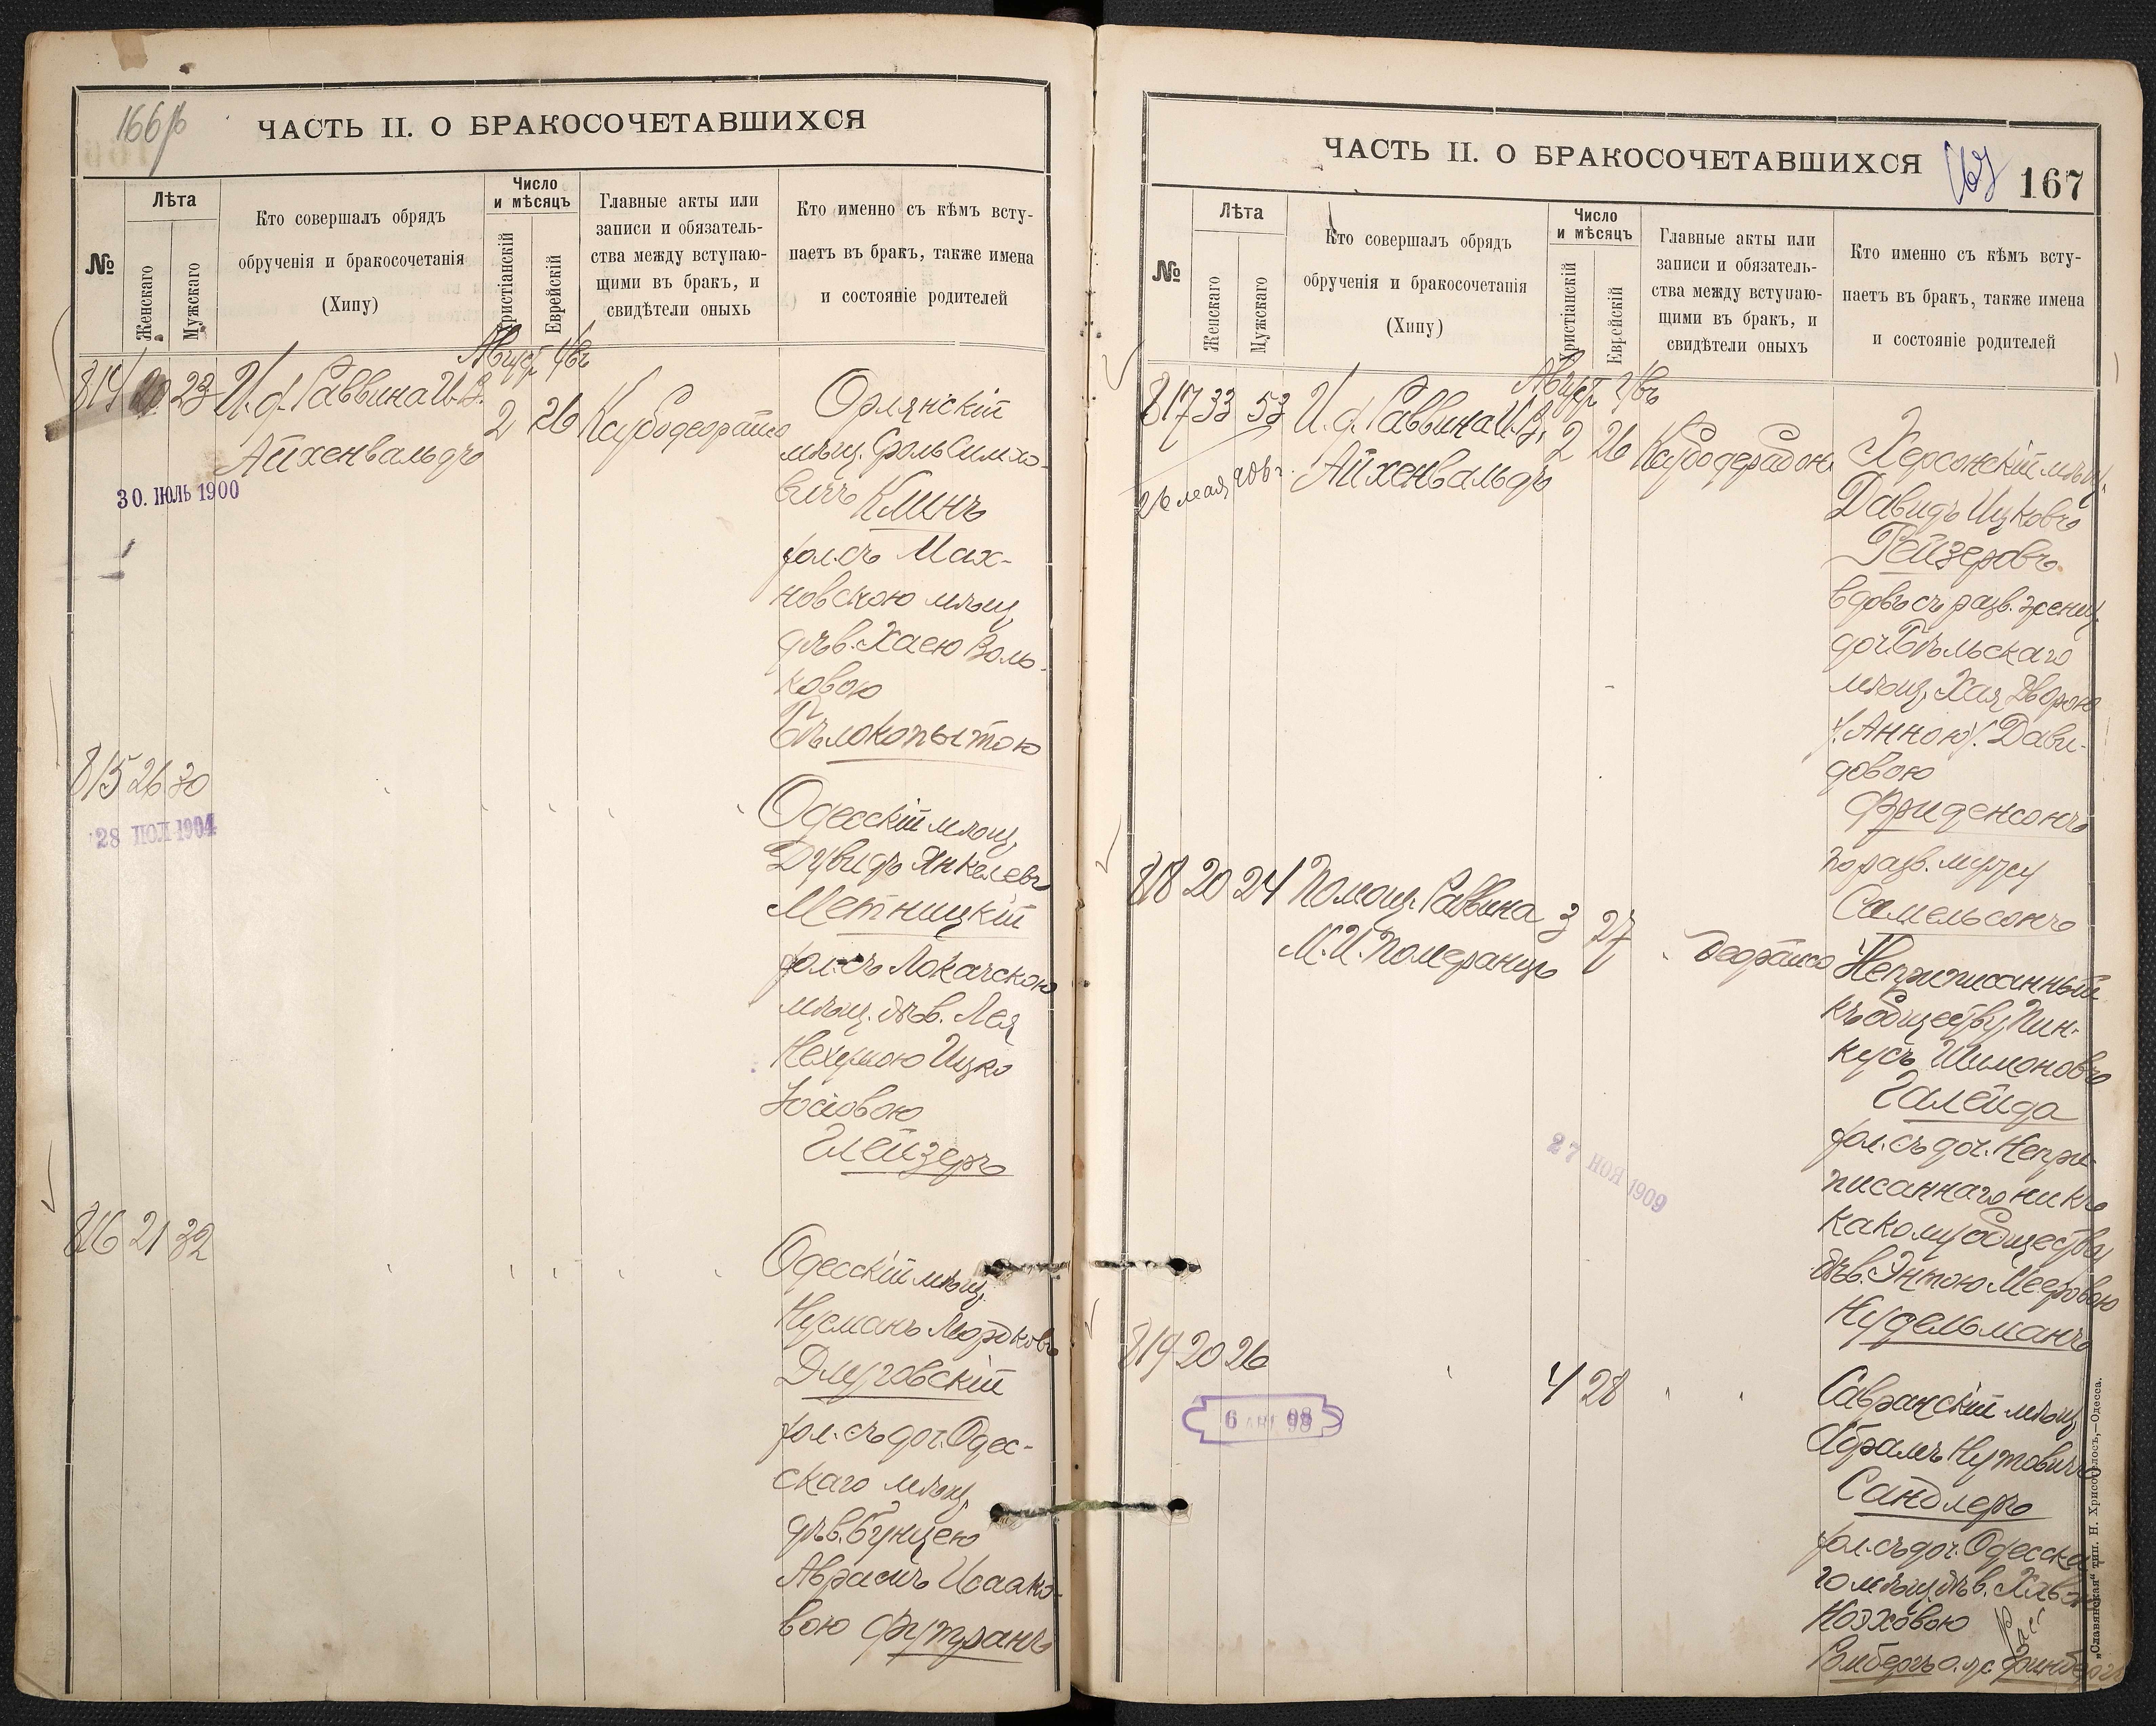 166 об
ЧАСТЬ II. О БРАКОСОЧЕТАВШИХСЯ
№
Лѣта
Женскаго
Мужскаго
Кто совершалъ обрядъ
обрученія и бракосочетанія
(Хипу)
Число
и мѣсяцъ
Христіанскій
Еврейскій
Главные акты или
записи и обязатель-
ства между вступаю-
щими въ бракъ, и
свидѣтели оныхъ
Кто именно съ кѣмъ всту-
паетъ въ бракъ, также имена
и состояніе родителей
Август
814 20 23 И. д. Раввина И. В.
Айхенвальдъ
2 26
30. ІЮЛЬ 1900
Орлянскій
мѣщ. Сроль Симхо-
вичъ Клинъ
хол. съ Мах-
новскою мѣщ.
дѣв. Хаею Воль-
ковою
Бѣлокопытою
815 26 30
28 ІЮЛ 1904
Одесскій мѣщ.
Дувидъ Янкелевъ
Метницкій
хол. съ Локачскою
мѣщ. дѣв. Лея
Нехумою Ицко
Іосіовою
Глейзеръ
816 21 32
Одесскій мѣщ.
Нусманъ Мордковъ
Длуговскій
хол. съ доч. Одес-
скаго мѣщ.
дѣв. Бунцею
Аврамъ Исаако-
вою Футранъ
ЧАСТЬ II. О БРАКОСОЧЕТАВШИХСЯ
167
167
№
Лѣта
Женскаго
Мужскаго
Кто совершалъ обрядъ
обрученія и бракосочетанія
(Хипу)
Число
и мѣсяцъ
Христіанскій
Еврейскій
Главные акты или
записи и обязатель-
ства между вступаю-
щими въ бракъ, и
свидѣтели оныхъ
Кто именно съ кѣмъ всту-
паетъ въ бракъ, также имена
и состояніе родителей
Август
817 33 53 И. д. Раввина И. В.
Айхенвальдъ
2 26
26 мая 908 г.
Херсонскій мѣщ.
Давидъ Ицковъ
Рейзеровъ
вдовъ съ разв. женщ.
доч. Бѣльскаго
мѣщ. Хая Дворою
/. Анною/. Дави-
довою
Фриденсонъ
по разв. мужу
Самельсонъ
818 20 24 Помощ. Раввина
М. И. Померанцъ
3 27
27 НОЯ 1909
Неприписанный
къ обществу, Пин-
кусъ Шимоновъ
Галейда
хол. съ доч. Непри-
писаннаго ни къ
какому обществу
дѣв. Энтою Мееровою
Нудельманъ
819 20 26
4 28
6 АПР 98
Савранскій мѣщ.
Абрамъ Нутовичъ
Сандлеръ
хол. съ доч. Одесска-
го мѣщ. дѣв. Хавою
Ноэховою
Римбергъ о. же Гринбергъ
„Славянская“ тип. Н. Хрисогелосъ,—Одесса.